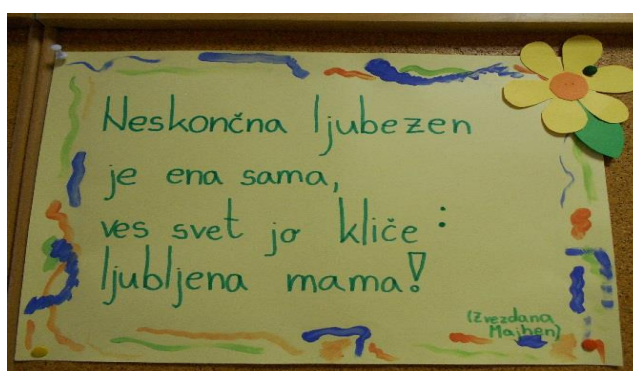 Neskončna ljubezen
je ena sama,
ves svet jo kliče:
ljubljena mama!
(Zvezdana
Majhen)